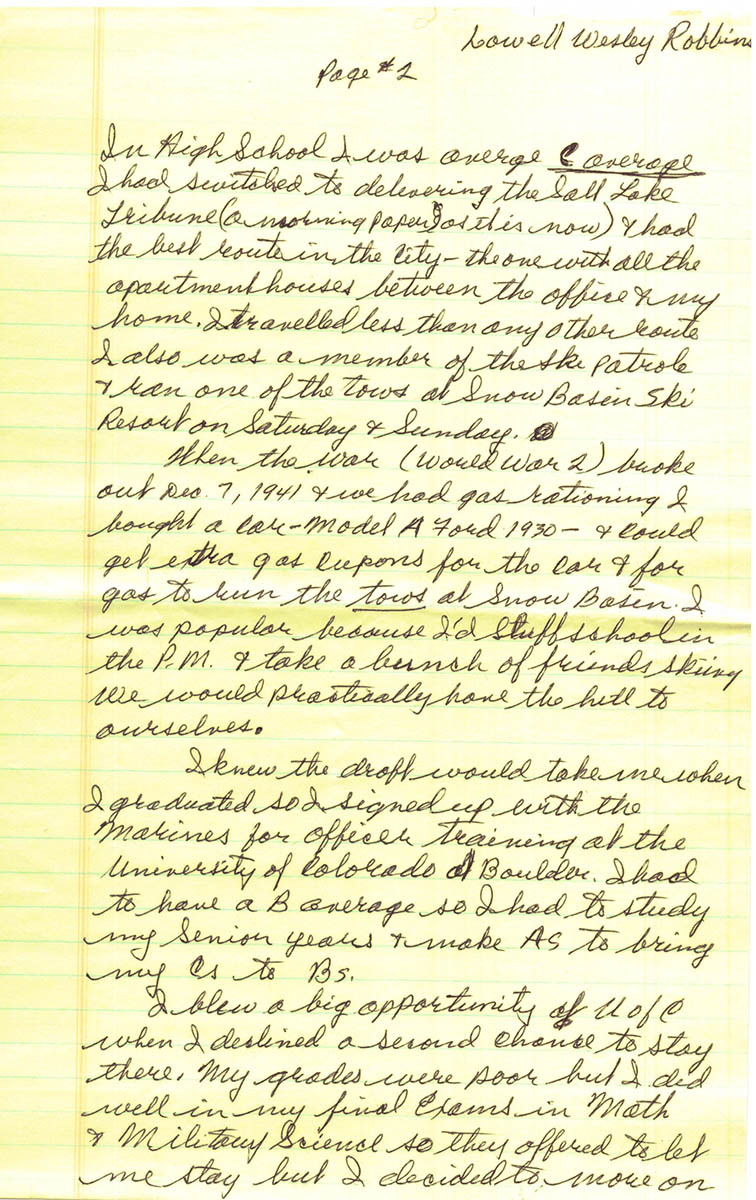 Lowell Wesley Robbins
Page #2
In High School I was averge C average
I had switched to delivering the Salt Lake
Tribune (a morning paper as it is now) & had
the best route in the City – the one with all the
apartment houses between the office & my
home. I travelled less than any other route
I also was a member of the ski patrole
& ran one of the tows at Snow Basin Ski
Resort on Saturday & Sunday.
When the war (World War 2) broke
out Dec. 7, 1941 & we had gas rationing I
bought a car – Model A Ford 1930 – & could
get extra gas cupons for the car & for
gas to run the tows at Snow Basin. I
was popular because I'd sluff school in
the P.M. & take a bunch of friends skiing
We would practically have the hill to
ourselves.
I knew the draft would take me when
I graduated so I signed up with the
Marines for officer training at the
University of Colorado at Boulder. I had
to have a B average so I had to study
my Senior years & make AS to bring
my Cs to Bs.
I blew a big opportunity at U of C
when I declined a second chance to stay
there. My grades were poor but I did
well in my final Exams in Math
& Military Science so they offered to let
me stay but I decided to move on